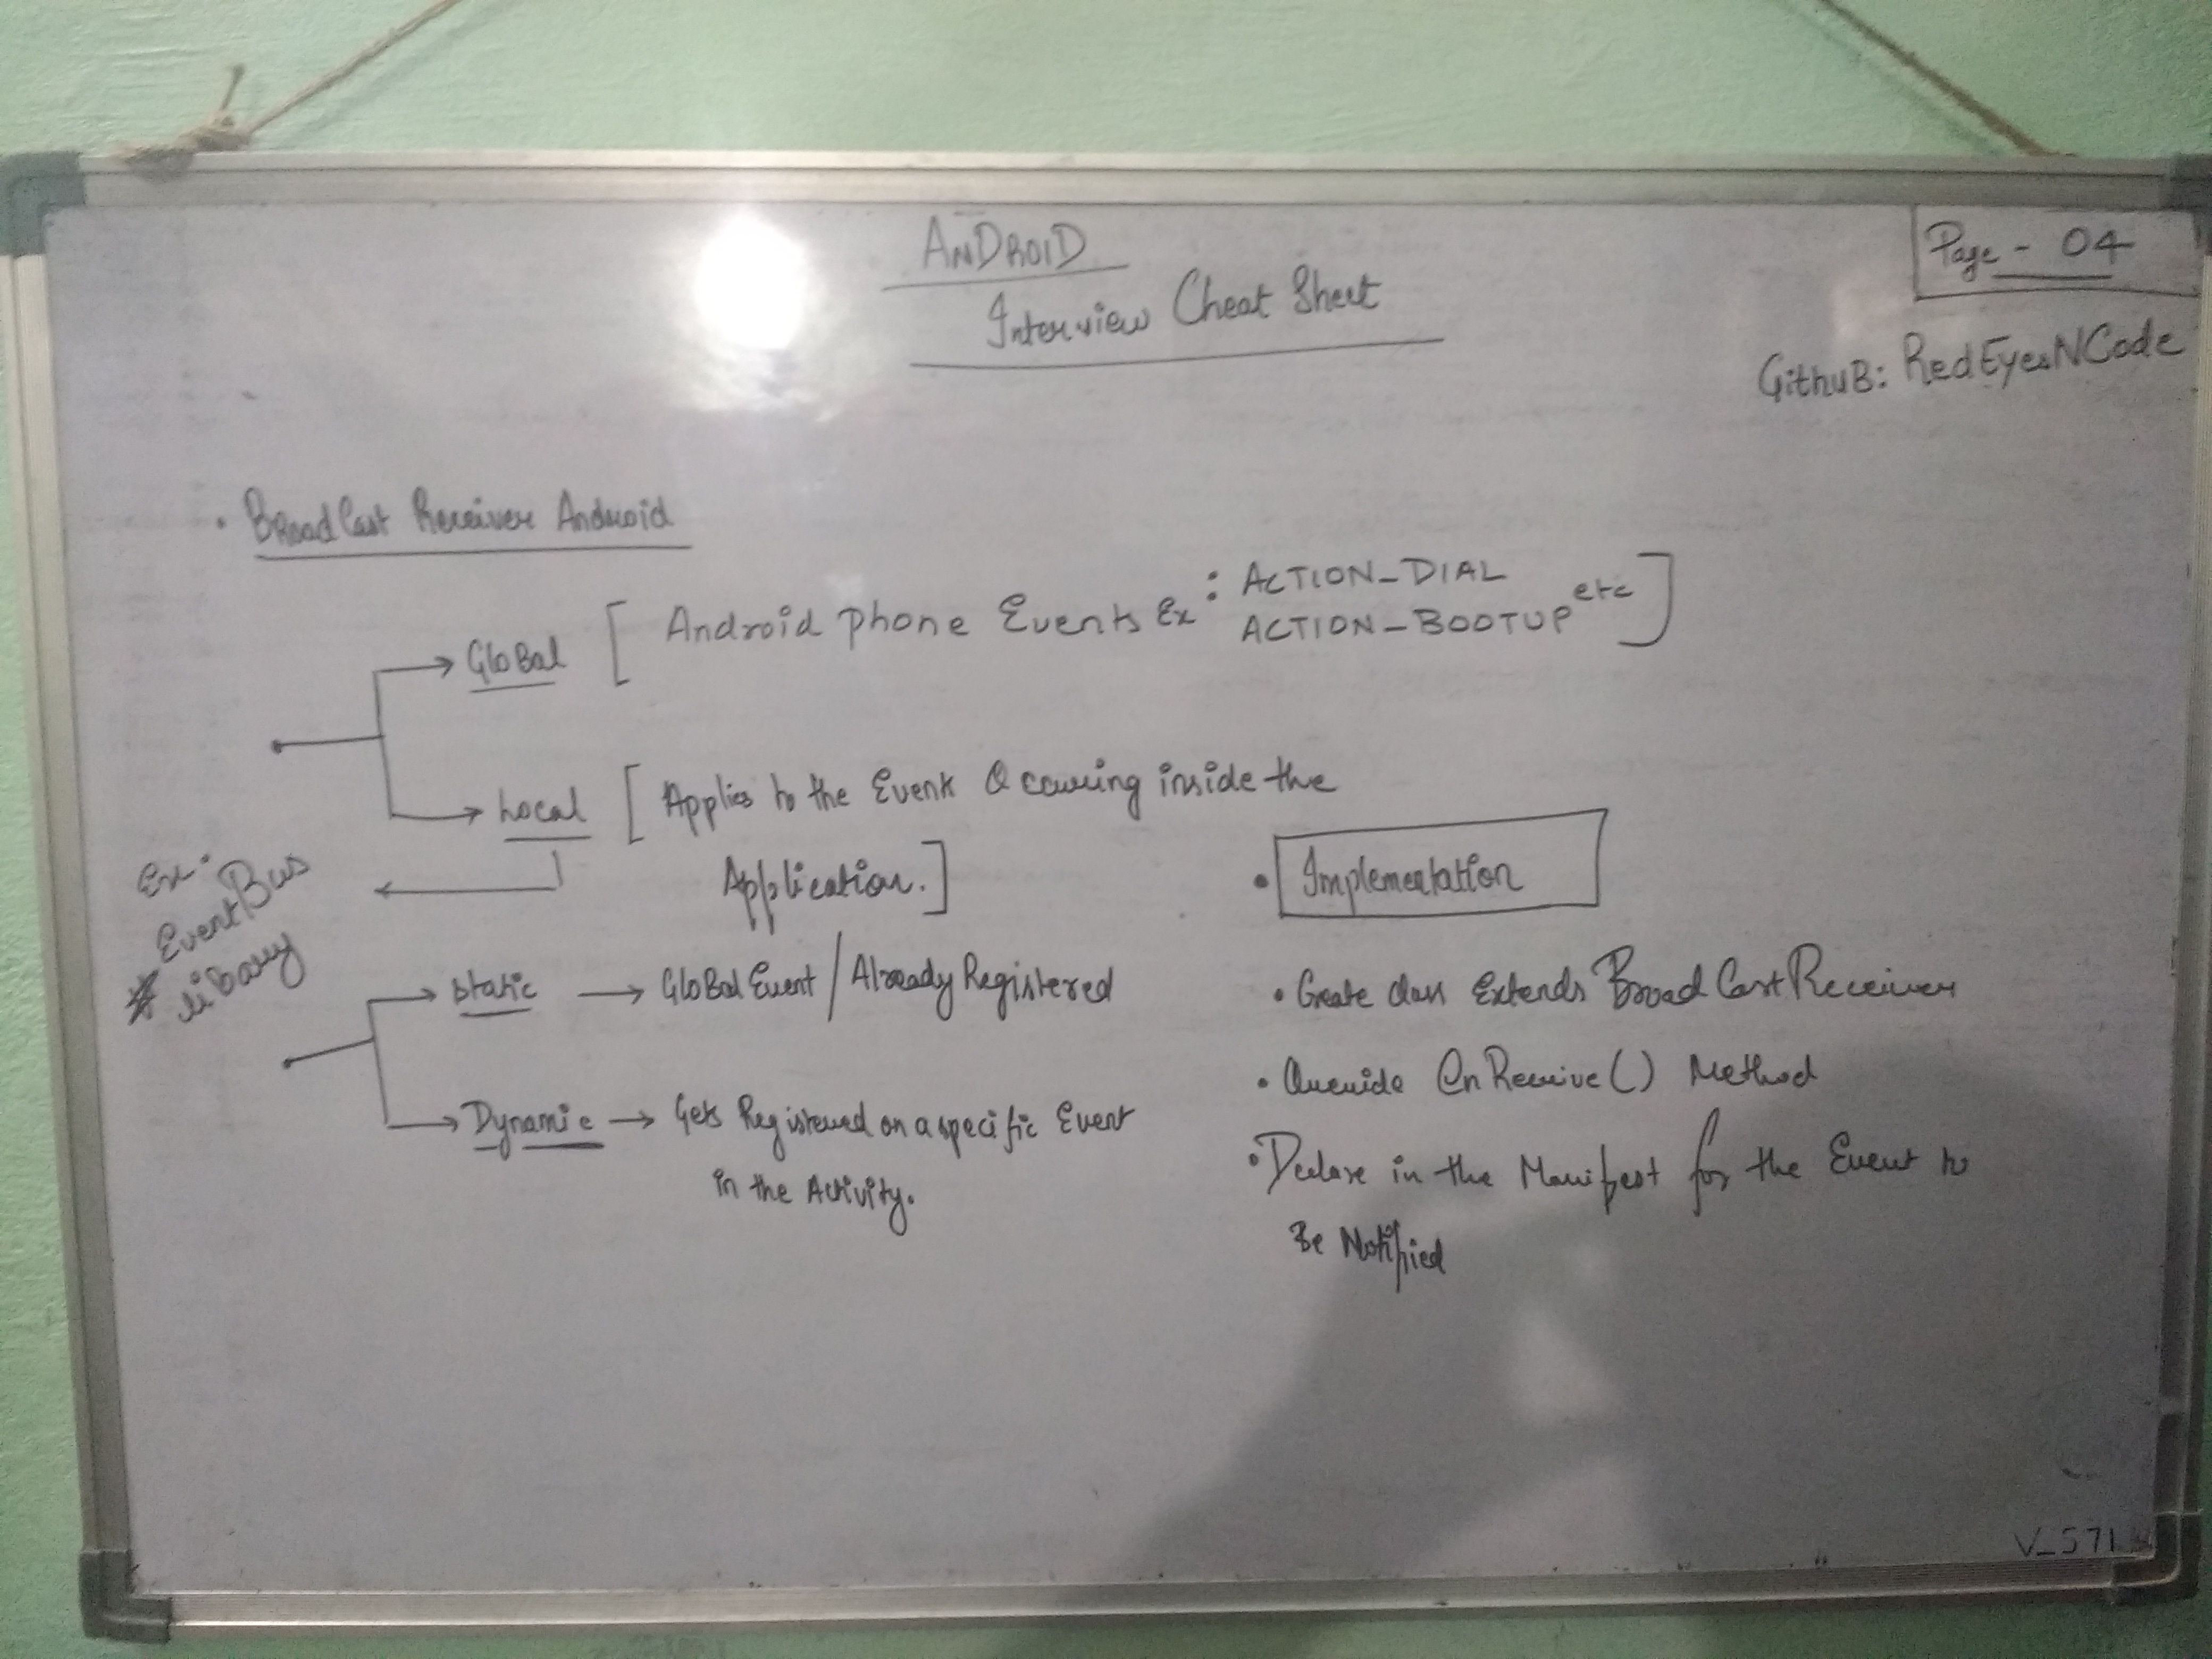 ANDROID
Interview Cheat Sheet
Page - 04
GithuB: RedEyesNCode
• BroadCast Receiver Android
→ GloBal [ Android phone Events Ex : ACTION_DIAL
ACTION_BOOTUP etc ]
→ Local [ Applies to the Event Occuring inside the
Application. ]
Ex:
EventBus
# libary
→ Static → GloBal Event / Already Registered
→ Dynamic → Gets Registered on a specific Event
in the Activity.
• Implementation
• Create class Extends BroadCastReceiver
• Override OnReceive() Method
• Declare in the Manifest for the Event to
Be Notified
V_571